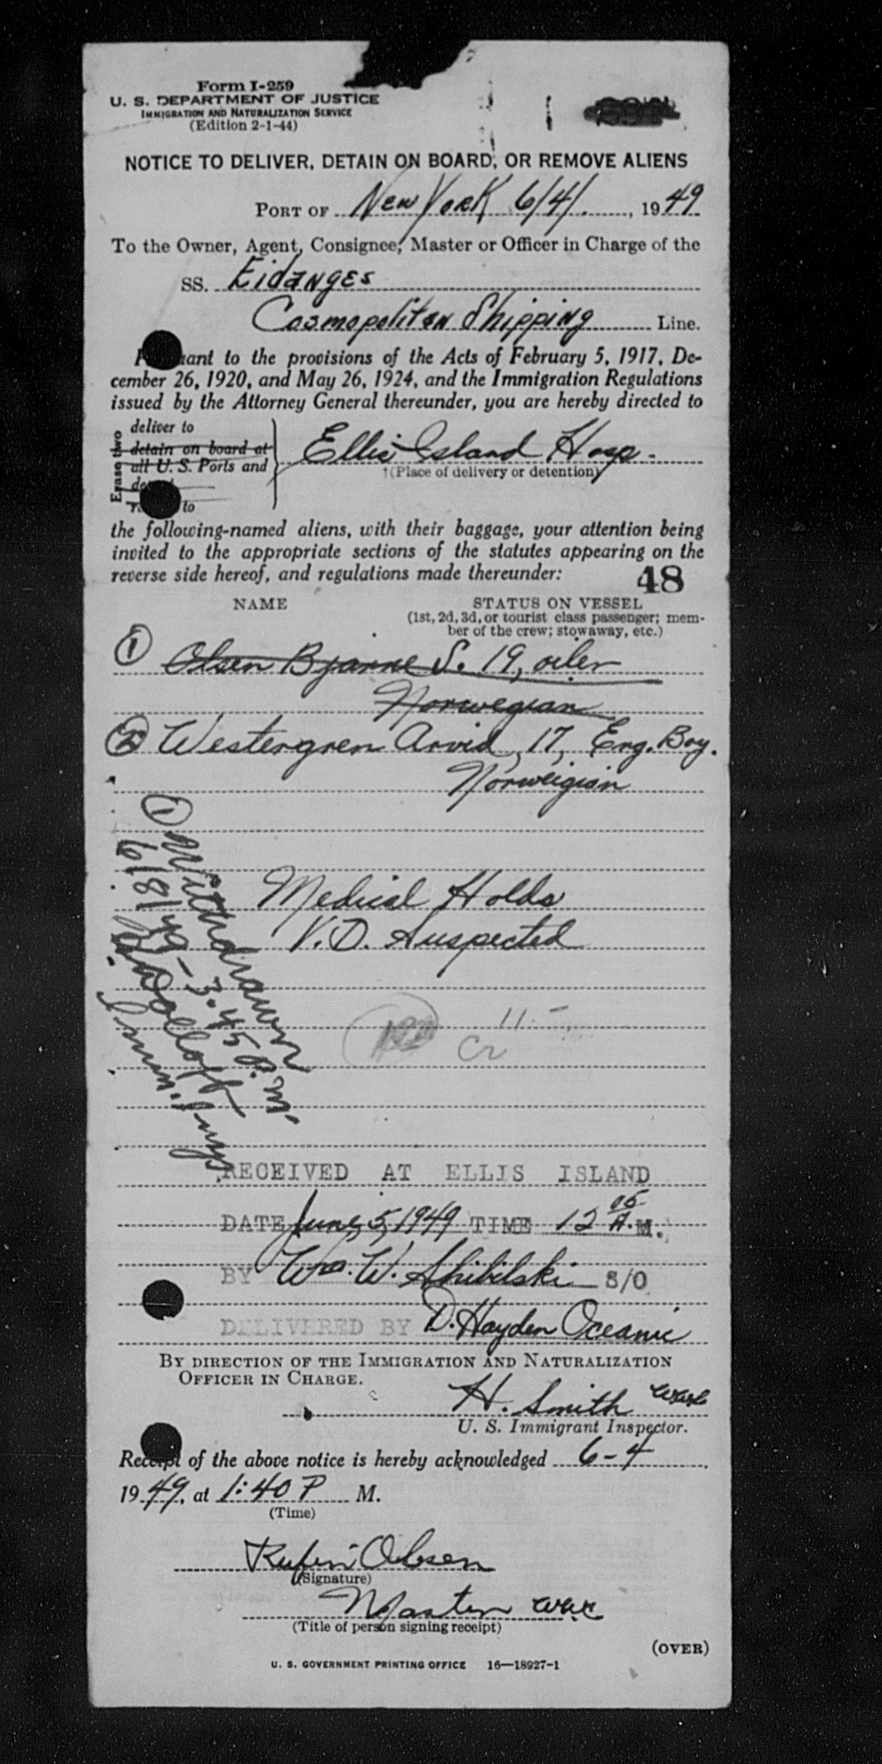 Form I-259
U. S. DEPARTMENT OF JUSTICE
IMMIGRATION AND NATURALIZATION SERVICE
(Edition 2-1-44)
NOTICE TO DELIVER, DETAIN ON BOARD, OR REMOVE ALIENS
PORT OF New York 6/4/, 1949
To the Owner, Agent, Consignee, Master or Officer in Charge of the
SS. Eidanges
Cosmopolitan Shipping Line.
to the provisions of the Acts of February 5, 1917, De-
cember 26, 1920, and May 26, 1924, and the Immigration Regulations
issued by the Attorney General thereunder, you are hereby directed to
Erase two
deliver to
detain on board at
all U. S. Ports and
to
Ellis Island Hosp.
(Place of delivery or detention)
the following-named aliens, with their baggage, your attention being
invited to the appropriate sections of the statutes appearing on the
reverse side hereof, and regulations made thereunder:
48
NAME STATUS ON VESSEL
(1st, 2d, 3d, or tourist class passenger; mem-
ber of the crew; stowaway, etc.)
① Olsen Bjarne S. 19, oiler
Norwegian
② Westergren Arvid, 17, Eng. Boy.
Norweigian
① Withdrawn
6/8/49 - 3.45 P.M.
Immn. Insp.
Medical Holds
V.D. Suspected
11.-
Cr
RECEIVED AT ELLIS ISLAND
DATE June 5, 1949 TIME 12 05 A.M.
BY Wm. W. Shibelski S/O
DELIVERED BY D. Hayden Oceanic
BY DIRECTION OF THE IMMIGRATION AND NATURALIZATION
OFFICER IN CHARGE.
H. Smith
U. S. Immigrant Inspector.
Receipt of the above notice is hereby acknowledged 6-4,
1949, at 1:40 P M.
(Time)
Olsen
(Signature)
Master
(Title of person signing receipt)
(OVER)
U. S. GOVERNMENT PRINTING OFFICE 16—18927-1